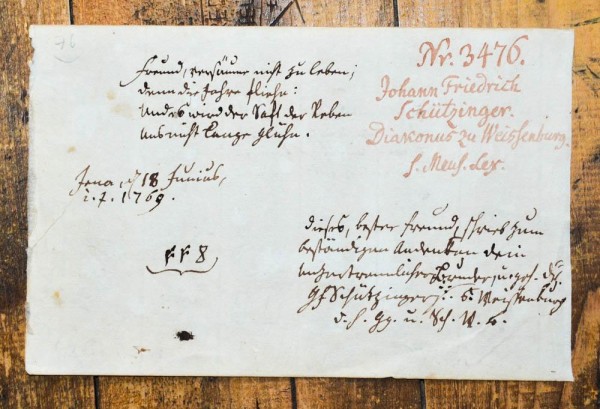 Freund, versäume nicht zu leben;
denn die Jahre fliehn:
Und es wird der Saft der Reben
uns nicht lange glühn.
Nr. 3476.
Johann Friedrich
Schützinger.
Diakonus zu Weissenburg.
s. Meus. Lex.
Jena d 18 Junius,
1769.
dieses, bester Freund, schrieb zum
beständigen Andenken dein
unzertrennlicher Bruder
Schützinger Weissenburg